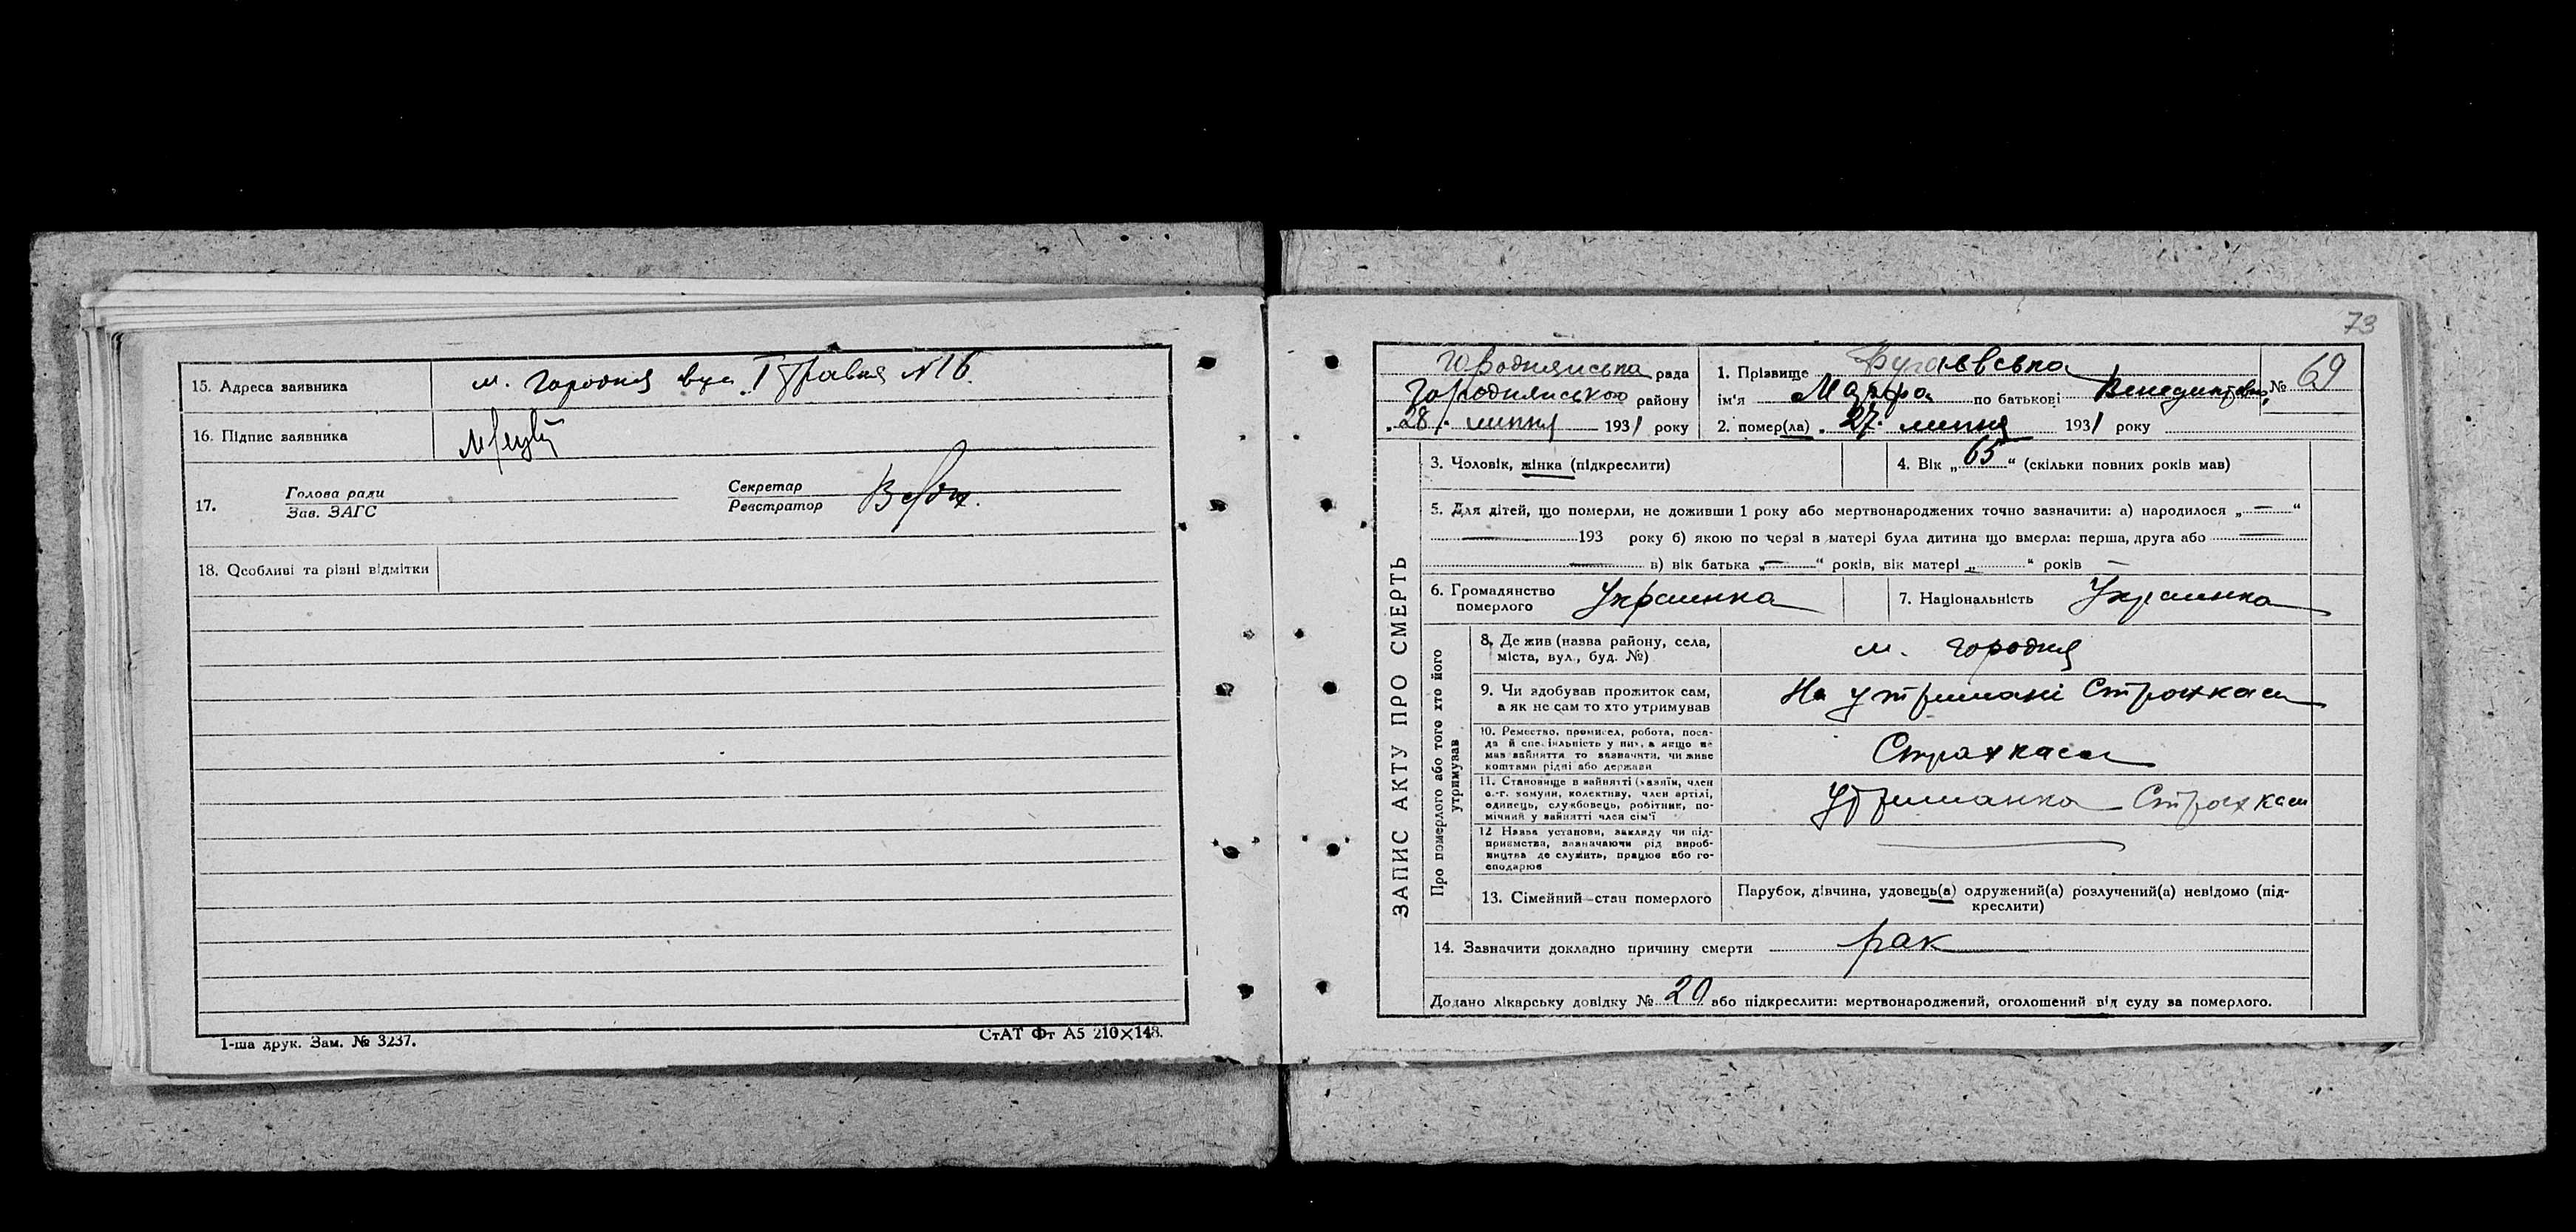 15. Адреса заявника м. Городня вул. 1 травня №16
16. Підпис заявника
17. Голова ради
Зав. ЗАГС
Секретар
Реєстратор
18. Особливі та різні відмітки
1-ша друк. Зам. № 3237.
СтАТ Фт А5 210×148.
73
Городнянська рада
Городнянського району
„28„ липня 1931 року
1. Прізвище Бугаєвська
ім'я Марфа по батькові Венедиктовна
№ 69
2. помер(ла) „27„ липня 1931 року
ЗАПИС АКТУ ПРО СМЕРТЬ
3. Чоловік, жінка (підкреслити)
4. Вік „65“ (скільки повних років мав)
5. Для дітей, що померли, не доживши 1 року або мертвонароджених точно зазначити: а) народилося „—“
— 193 року б) якою по черзі в матері була дитина що вмерла: перша, друга або —
— в) вік батька „—“ років, вік матері „ “ років —
6. Громадянство
померлого
Украинка
7. Національність Украинка
Про померлого або того хто його
утримував
8. Де жив (назва району, села,
міста, вул., буд. №)
м. Городня
9. Чи здобував прожиток сам,
а як не сам то хто утримував
На утримані Страхкаси
10. Ремество, промисел, робота, поса-
да й спеціяльність у них, а якщо не
мав зайняття то зазначити, чи живе
коштами рідні або держави
Страхкаси
11. Становище в зайнятті (хазяїн, член
с.-г. комуни, колективу, член артілі,
одинець, службовець, робітник, по-
мічний у зайнятті член сім'ї
Утриманка Страхкаси
12 Назва установи, закладу чи під-
приємства, зазначаючи рід вироб-
ництва де служить, працює або го-
сподарює
13. Сімейний стан померлого
Парубок, дівчина, удовець(а) одружений(а) розлучений(а) невідомо (під-
креслити)
14. Зазначити докладно причину смерти рак
Додано лікарську довідку № 20 або підкреслити: мертвонароджений, оголошений від суду за померлого.